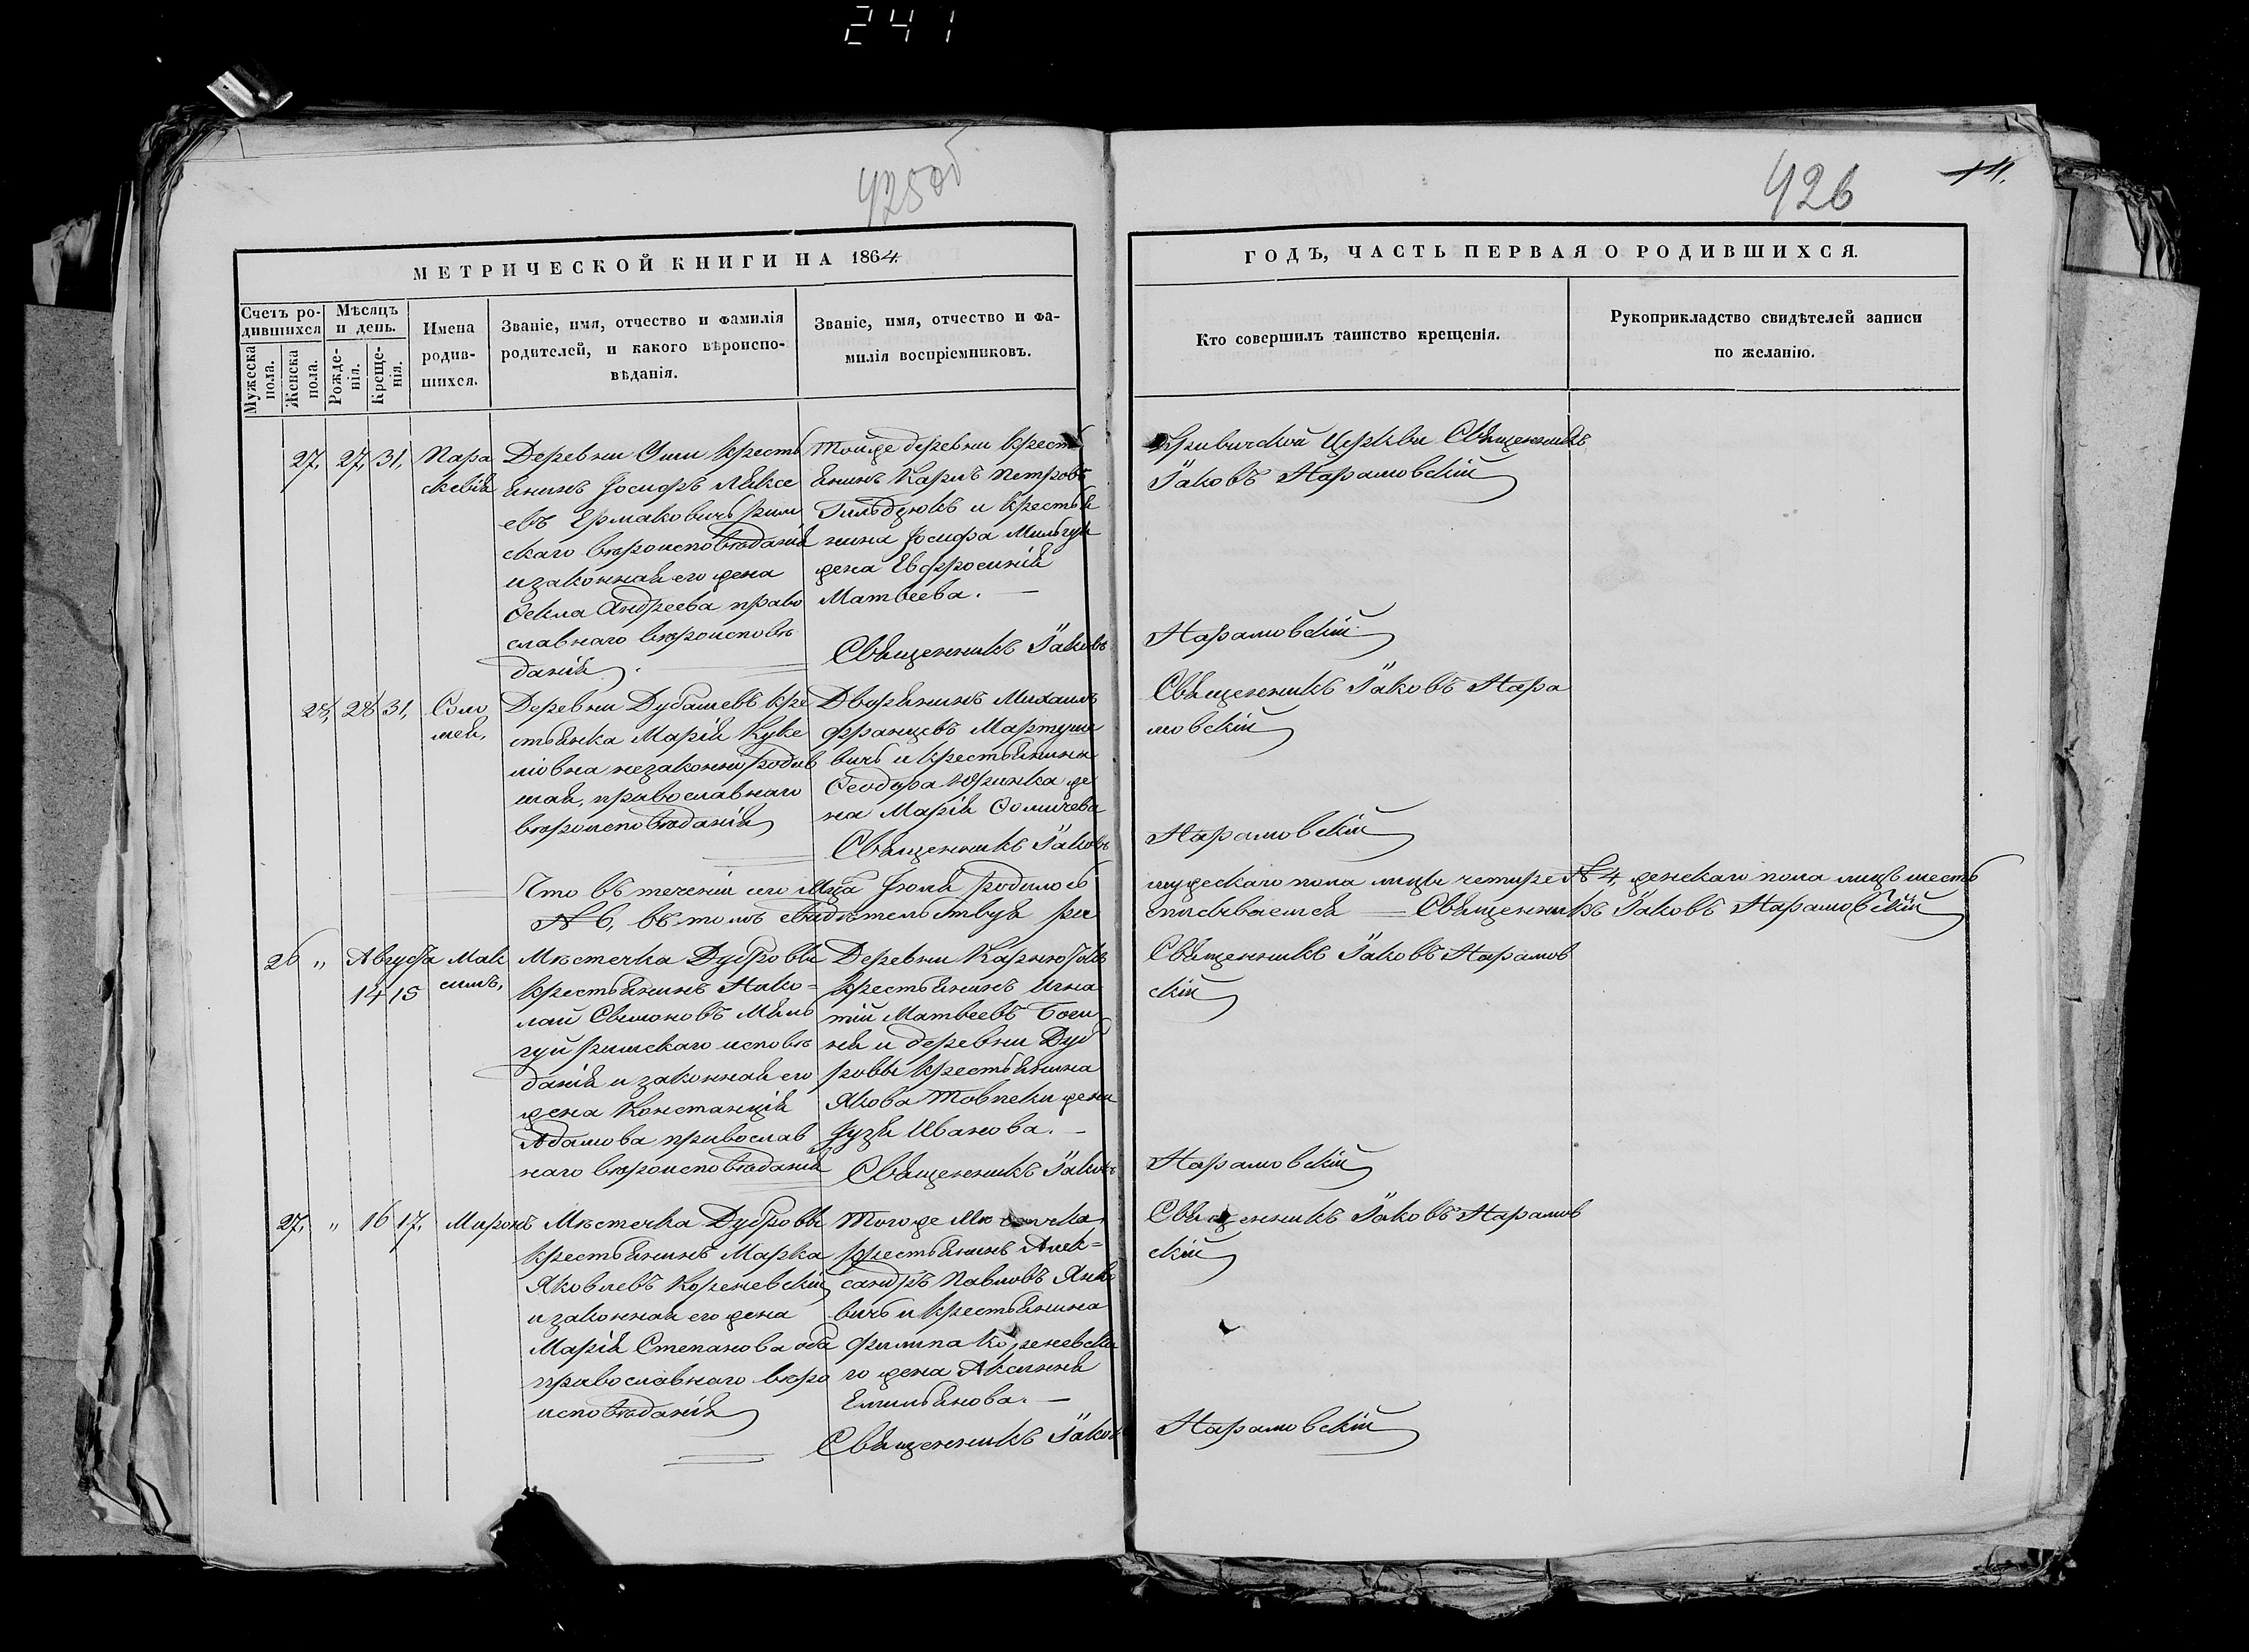 241
425об
426
МЕТРИЧЕСКОЙ КНИГИ НА 1864
ГОДЪ, ЧАСТЬ ПЕРВАЯ О РОДИВШИХСЯ.
Счетъ родившихся
Мужеска пола.
Женска пола.
Мѣсяцъ и день.
Рожденія.
Крещенія.
Имена родившихся.
Званіе, имя, отчество и фамилія
родителей, и какого вѣроиспо-
вѣданія.
Званіе, имя, отчество и фа-
милія воспріемниковъ.
Кто совершилъ таинство крещенія.
Рукоприкладство свидѣтелей записи
по желанію.
27, 27, 31,
Пара
скевія
Деревни кресть
янинъ Іосифъ Алексе
евъ Ермаковичъ рим
скаго вѣроисповѣданія
и законная его жена
Ѳекла Андреева право
славнаго вѣроисповѣ
данія.
Тойже деревни кресть
янинъ Карлъ Петровъ
Гильдзюкъ и крестья
нина Іосифа Мильгуя
жена Евфросинія
Матвеева. —
Священникъ Іаковъ
Кривичской Церкви Священникъ
Іаковъ Нарамовскій
Нарамовскій
28, 28 31,
Соло
мея,
Деревни кре
стьянка Марія
незаконнородив
шая, православнаго
вѣроисповѣданія
Дворянинъ Михаилъ
Францевъ Мартуше
вичъ и крестьянина
Ѳеодора же
на Марія Ѳомичева
Священникъ Іаковъ
Священникъ Іаковъ Нара
мовскій
Нарамовскій
Что въ теченіи сего Мца Іюля родилось
мужескаго пола лицъ четыре № 4, женскаго пола лицъ шесть
№ 6, въ томъ свидѣтельствуя рос
писываемся — Священникъ Іаковъ Нарамовскій
26 „ Августа
14 15
Мак
симъ,
Мѣстечка Дубровы
крестьянинъ Нико=
лай Симоновъ Миль
гуй римскаго исповѣ
данія и законная его
жена Констанція
Адамова православ
наго вѣроисповѣданія
Деревни
крестьянинъ Игна
тій Матвеевъ
и деревни Дуб
ровы крестьянина
Якова жена
Іузя Иванова. —
Священникъ Іаковъ
Священникъ Іаковъ Нарамов
скій
Нарамовскій
27, „ 16 17,
Миронъ
Мѣстечка Дубровы
крестьянинъ Марка
Яковлевъ Кореневскій
и законная его жена
Марія Степанова оба
православнаго вѣро
исповѣданія
Тогоже Мѣстечка
крестьянинъ Алек=
сандръ Павловъ Янко
вичъ и крестьянина
Филипа Кореневска
го жена Аксинія
Емильянова. —
Священникъ Іаковъ
Священникъ Іаковъ Нарамов
скій
Нарамовскій